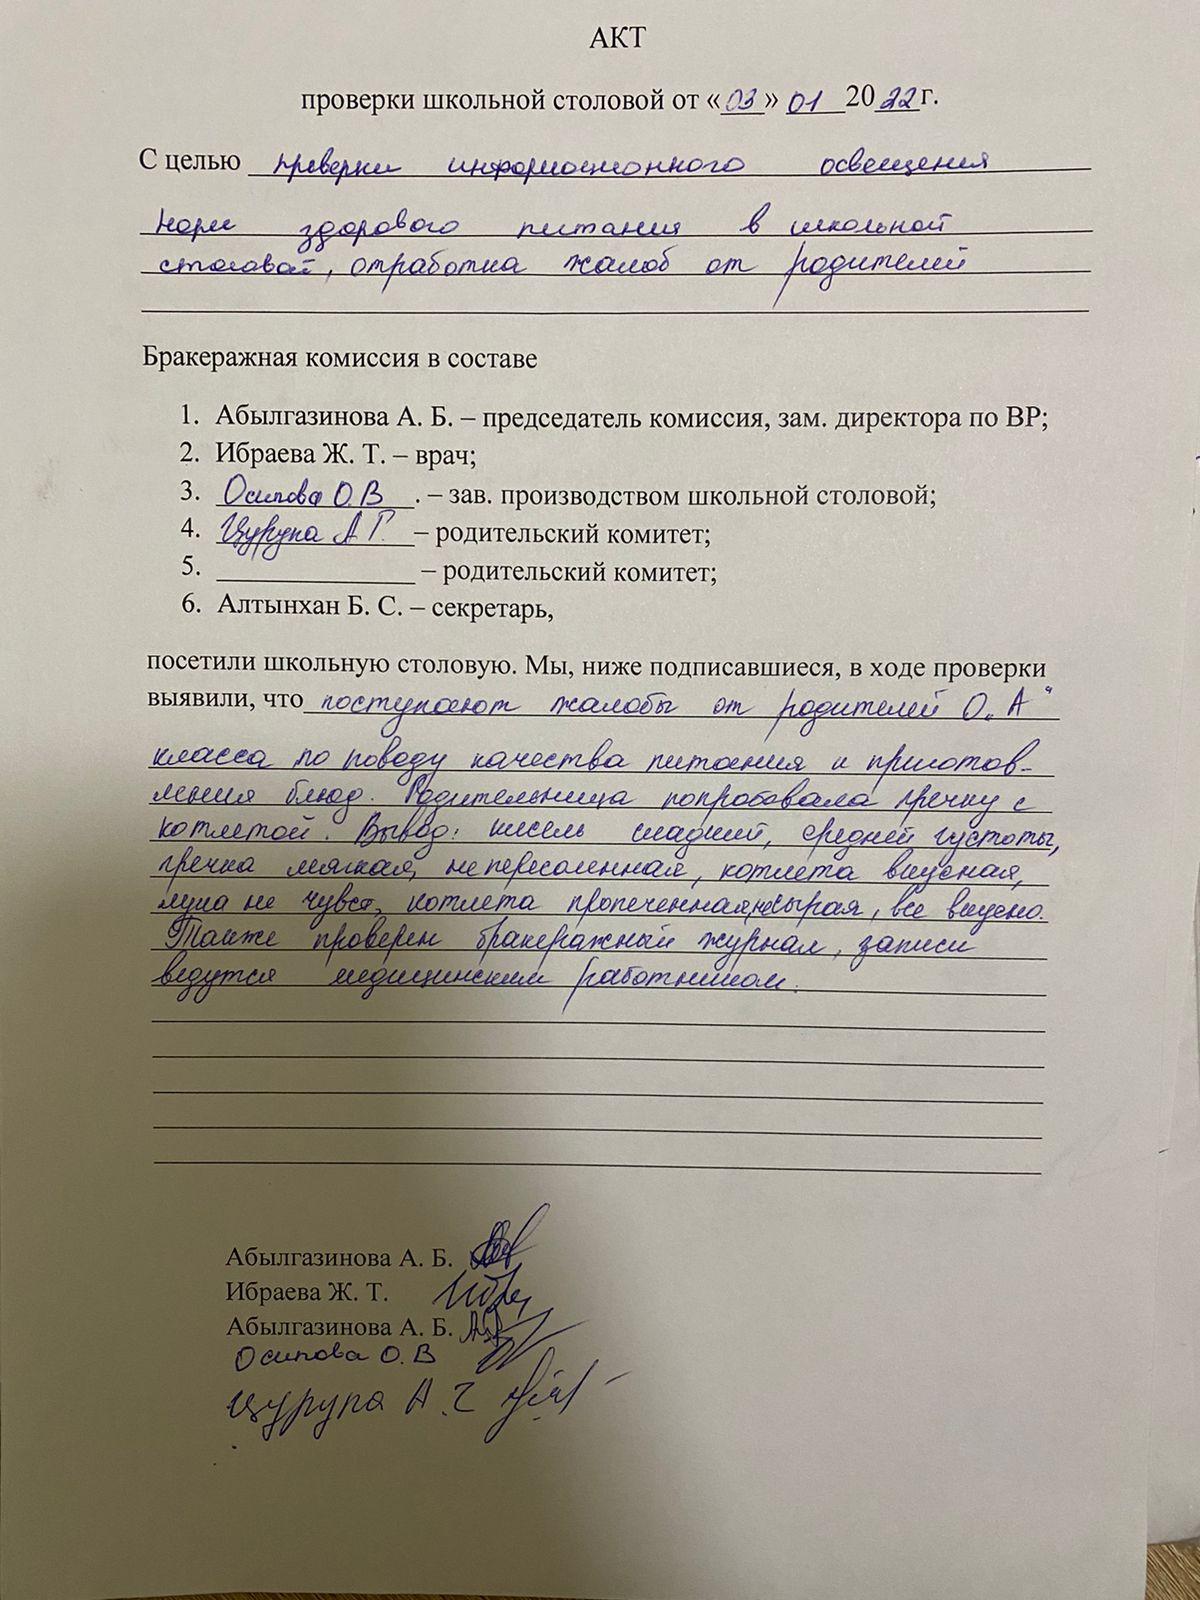 АКТ
проверки школьной столовой от «03» 01 2022г.
С целью проверки информационного освещения
норм здорового питания в школьной
столовой, отработка жалоб от родителей
Бракеражная комиссия в составе
1. Абылгазинова А. Б. – председатель комиссия, зам. директора по ВР;
2. Ибраева Ж. Т. – врач;
3. Осипова О.В. – зав. производством школьной столовой;
4. Цурупа А Г. – родительский комитет;
5. ______________ – родительский комитет;
6. Алтынхан Б. С. – секретарь,
посетили школьную столовую. Мы, ниже подписавшиеся, в ходе проверки
выявили, что поступают жалобы от родителей 0 „А"
класса по поводу качества питания и приготов-
ления блюд. Родительница попробовала гречку с
котлетой. Вывод: кисель сладкий, средней густоты,
гречка мягкая, не пересоленная, котлета вкусная,
лука не чувст, котлета пропеченная, не сырая, все вкусно.
Также проверен бракеражный журнал, записи
ведутся медицинским работником.
Абылгазинова А. Б.
Ибраева Ж. Т.
Абылгазинова А. Б.
Осипова О. В
Цурупа А. Г